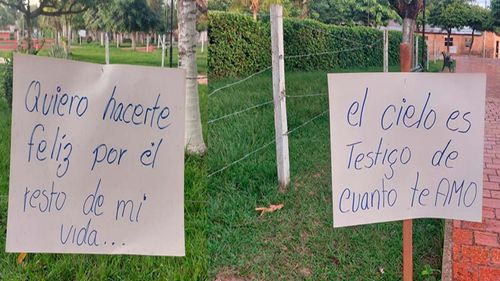 Quiero hacerte
feliz por él
resto de mi
vida...
el cielo es
Testigo de
cuanto te AMO